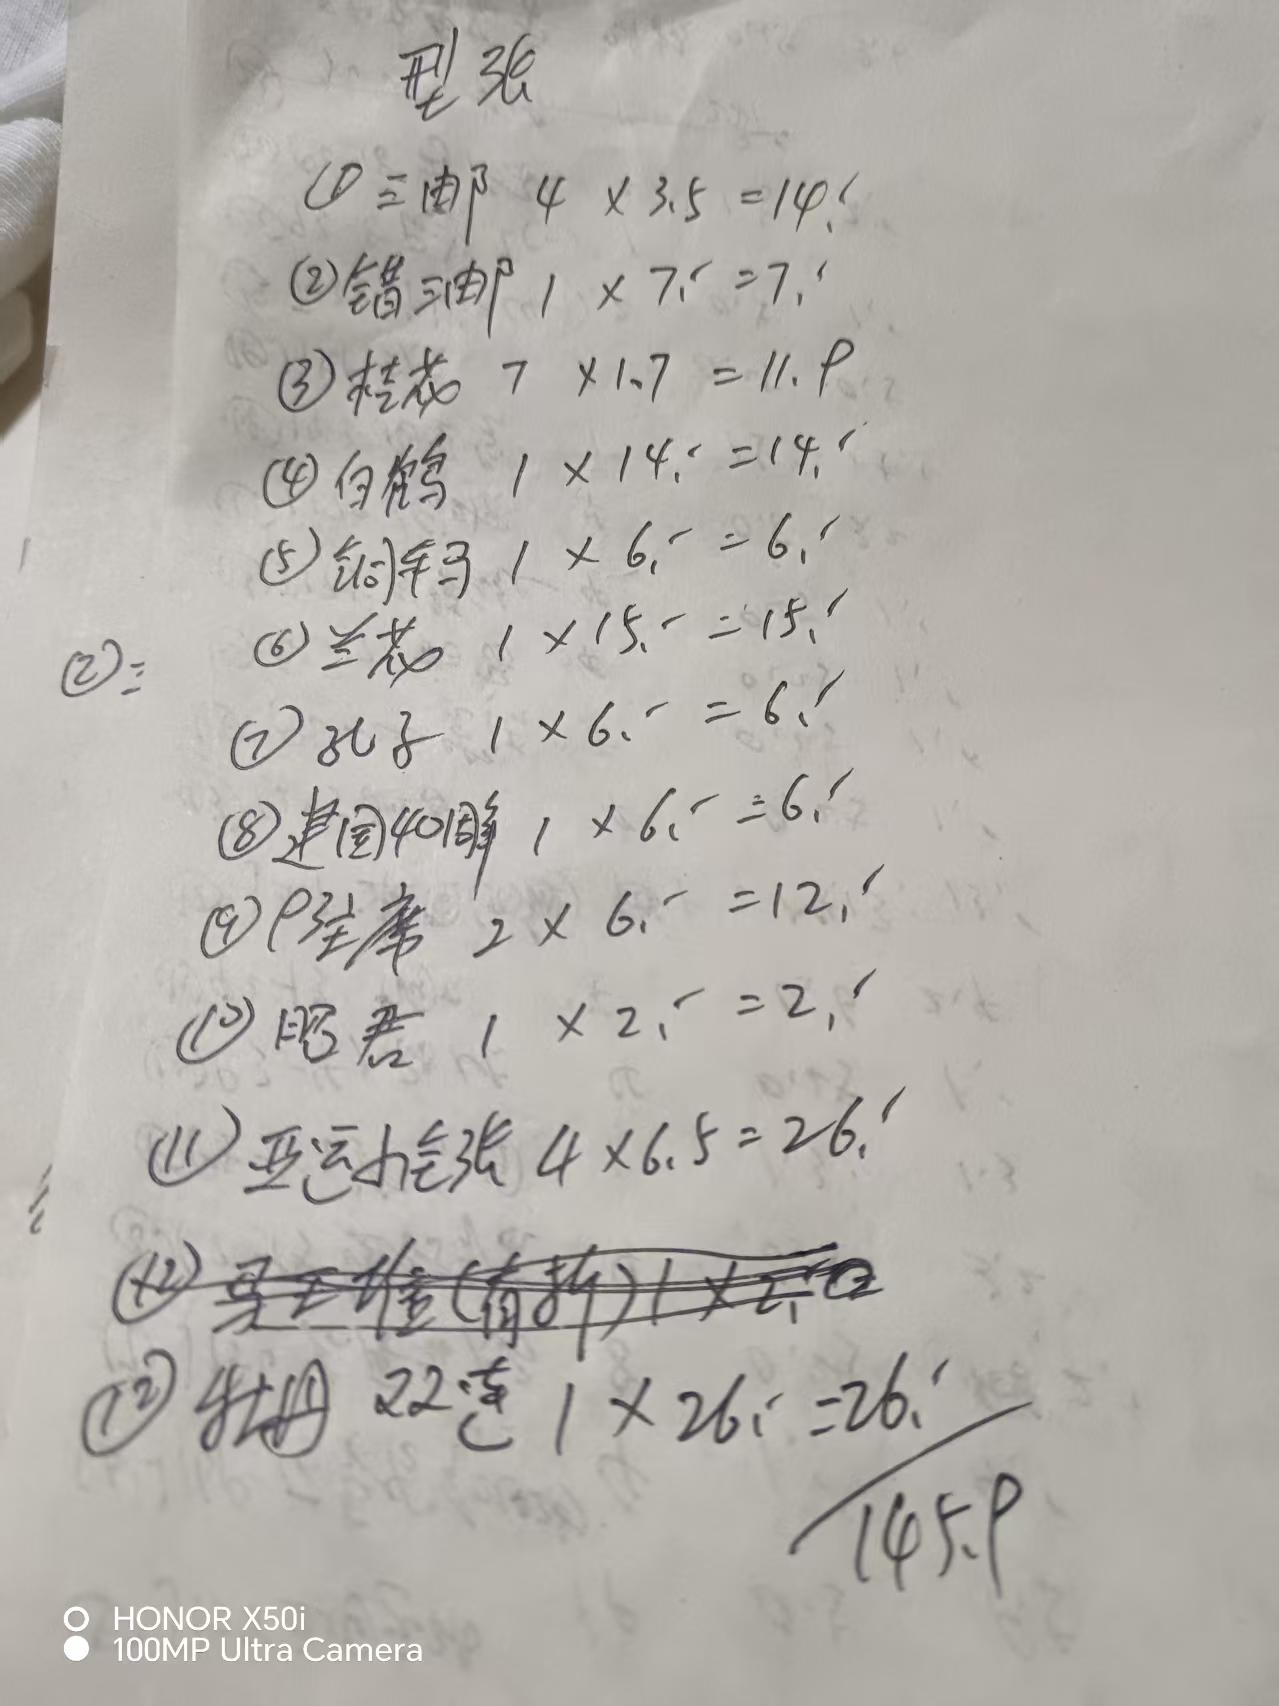 型张
① 三邮 4 × 3.5 = 14.-
② 错三邮 1 × 7.- = 7.-
③ 桂花 7 × 1.7 = 11.9
④ 白鹤 1 × 14.- = 14.-
⑤ 铜车马 1 × 6.- = 6.-
⑥ 兰花 1 × 15.- = 15.-
②三
⑦ 孔子 1 × 6.- = 6.-
⑧ 建国40周年 1 × 6.- = 6.-
⑨ 主席 2 × 6.- = 12.-
⑩ 昭君 1 × 2.- = 2.-
⑪ 亚运小全张 4 × 6.5 = 26.-
⑫ 马王堆(有折) 1 × 2.-
⑫ 牡丹 22连 1 × 26.- = 26.-
145.9
HONOR X50i
100MP Ultra Camera